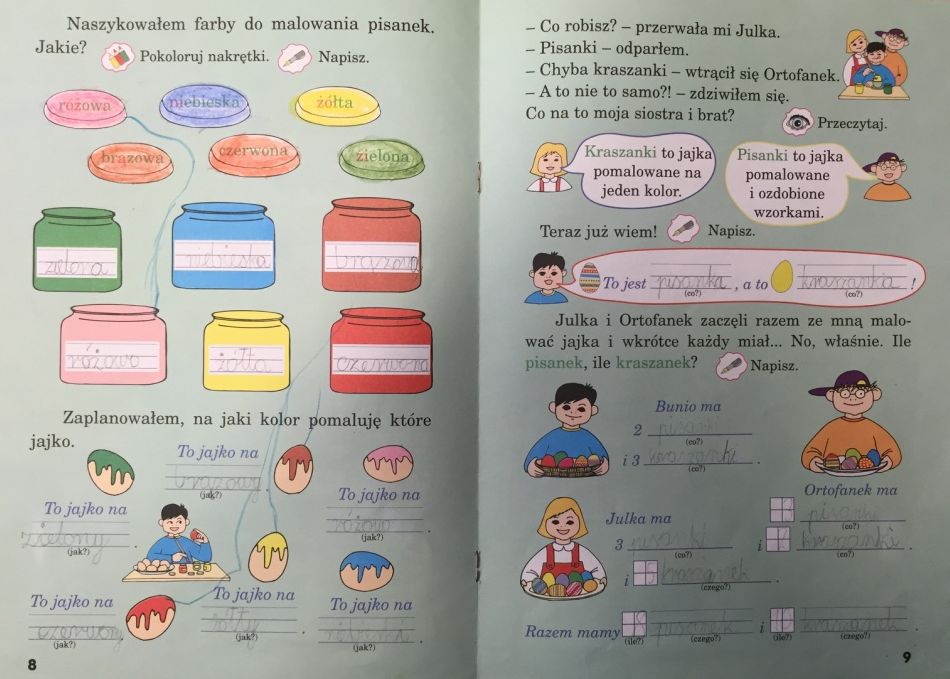 Naszykowałem farby do malowania pisanek.
Jakie? Pokoloruj nakrętki. Napisz.
różowa niebieska żółta
brązowa czerwona zielona
zielona niebieska brązowa
różowa żółta czerwona
Zaplanowałem, na jaki kolor pomaluję które
jajko.
To jajko na
brązowy
(jak?)
To jajko na
zielony .
(jak?)
To jajko na
różowo .
(jak?)
To jajko na
czerwony .
(jak?)
To jajko na
żółty .
(jak?)
To jajko na
niebieski .
(jak?)
8
– Co robisz? – przerwała mi Julka.
– Pisanki – odparłem.
– Chyba kraszanki – wtrącił się Ortofanek.
– A to nie to samo?! – zdziwiłem się.
Co na to moja siostra i brat? Przeczytaj.
Kraszanki to jajka
pomalowane na
jeden kolor.
Pisanki to jajka
pomalowane
i ozdobione
wzorkami.
Teraz już wiem! Napisz.
To jest pisanka , a to kraszanka !
(co?) (co?)
Julka i Ortofanek zaczęli razem ze mną malo-
wać jajka i wkrótce każdy miał... No, właśnie. Ile
pisanek, ile kraszanek? Napisz.
Bunio ma
2 pisanki
(co?)
i 3 kraszanki .
(co?)
Ortofanek ma
pisanki
(co?)
i kraszanki .
(co?)
Julka ma
3 pisanki
(co?)
i kraszanek .
(czego?)
Razem mamy pisanek i kraszanek .
(ile?) (czego?) (ile?) (czego?)
9